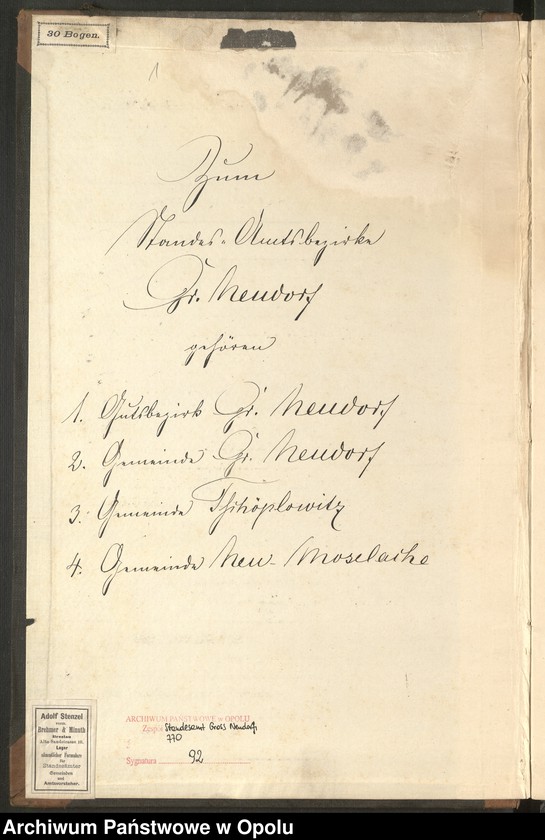 30 Bogen.
1
Zum
Standes-Amtsbezirke
Gr. Neudorf
gehören
1. Gutsbezirk Gr. Neudorf
2. Gemeinde Gr. Neudorf
3. Gemeinde Tschöplowitz
4. Gemeinde Neu-Moselache
Adolf Stenzel
vorm.
Brehmer & Minuth
Breslau
Lager
sämmtlicher Formulare
für
Standesämter
Gemeinden
und
Amtsvorsteher.
ARCHIWUM PAŃSTWOWE w OPOLU
Zespół Standesamt Gross Neudorf
770
Sygnatura 92
Archiwum Państwowe w Opolu